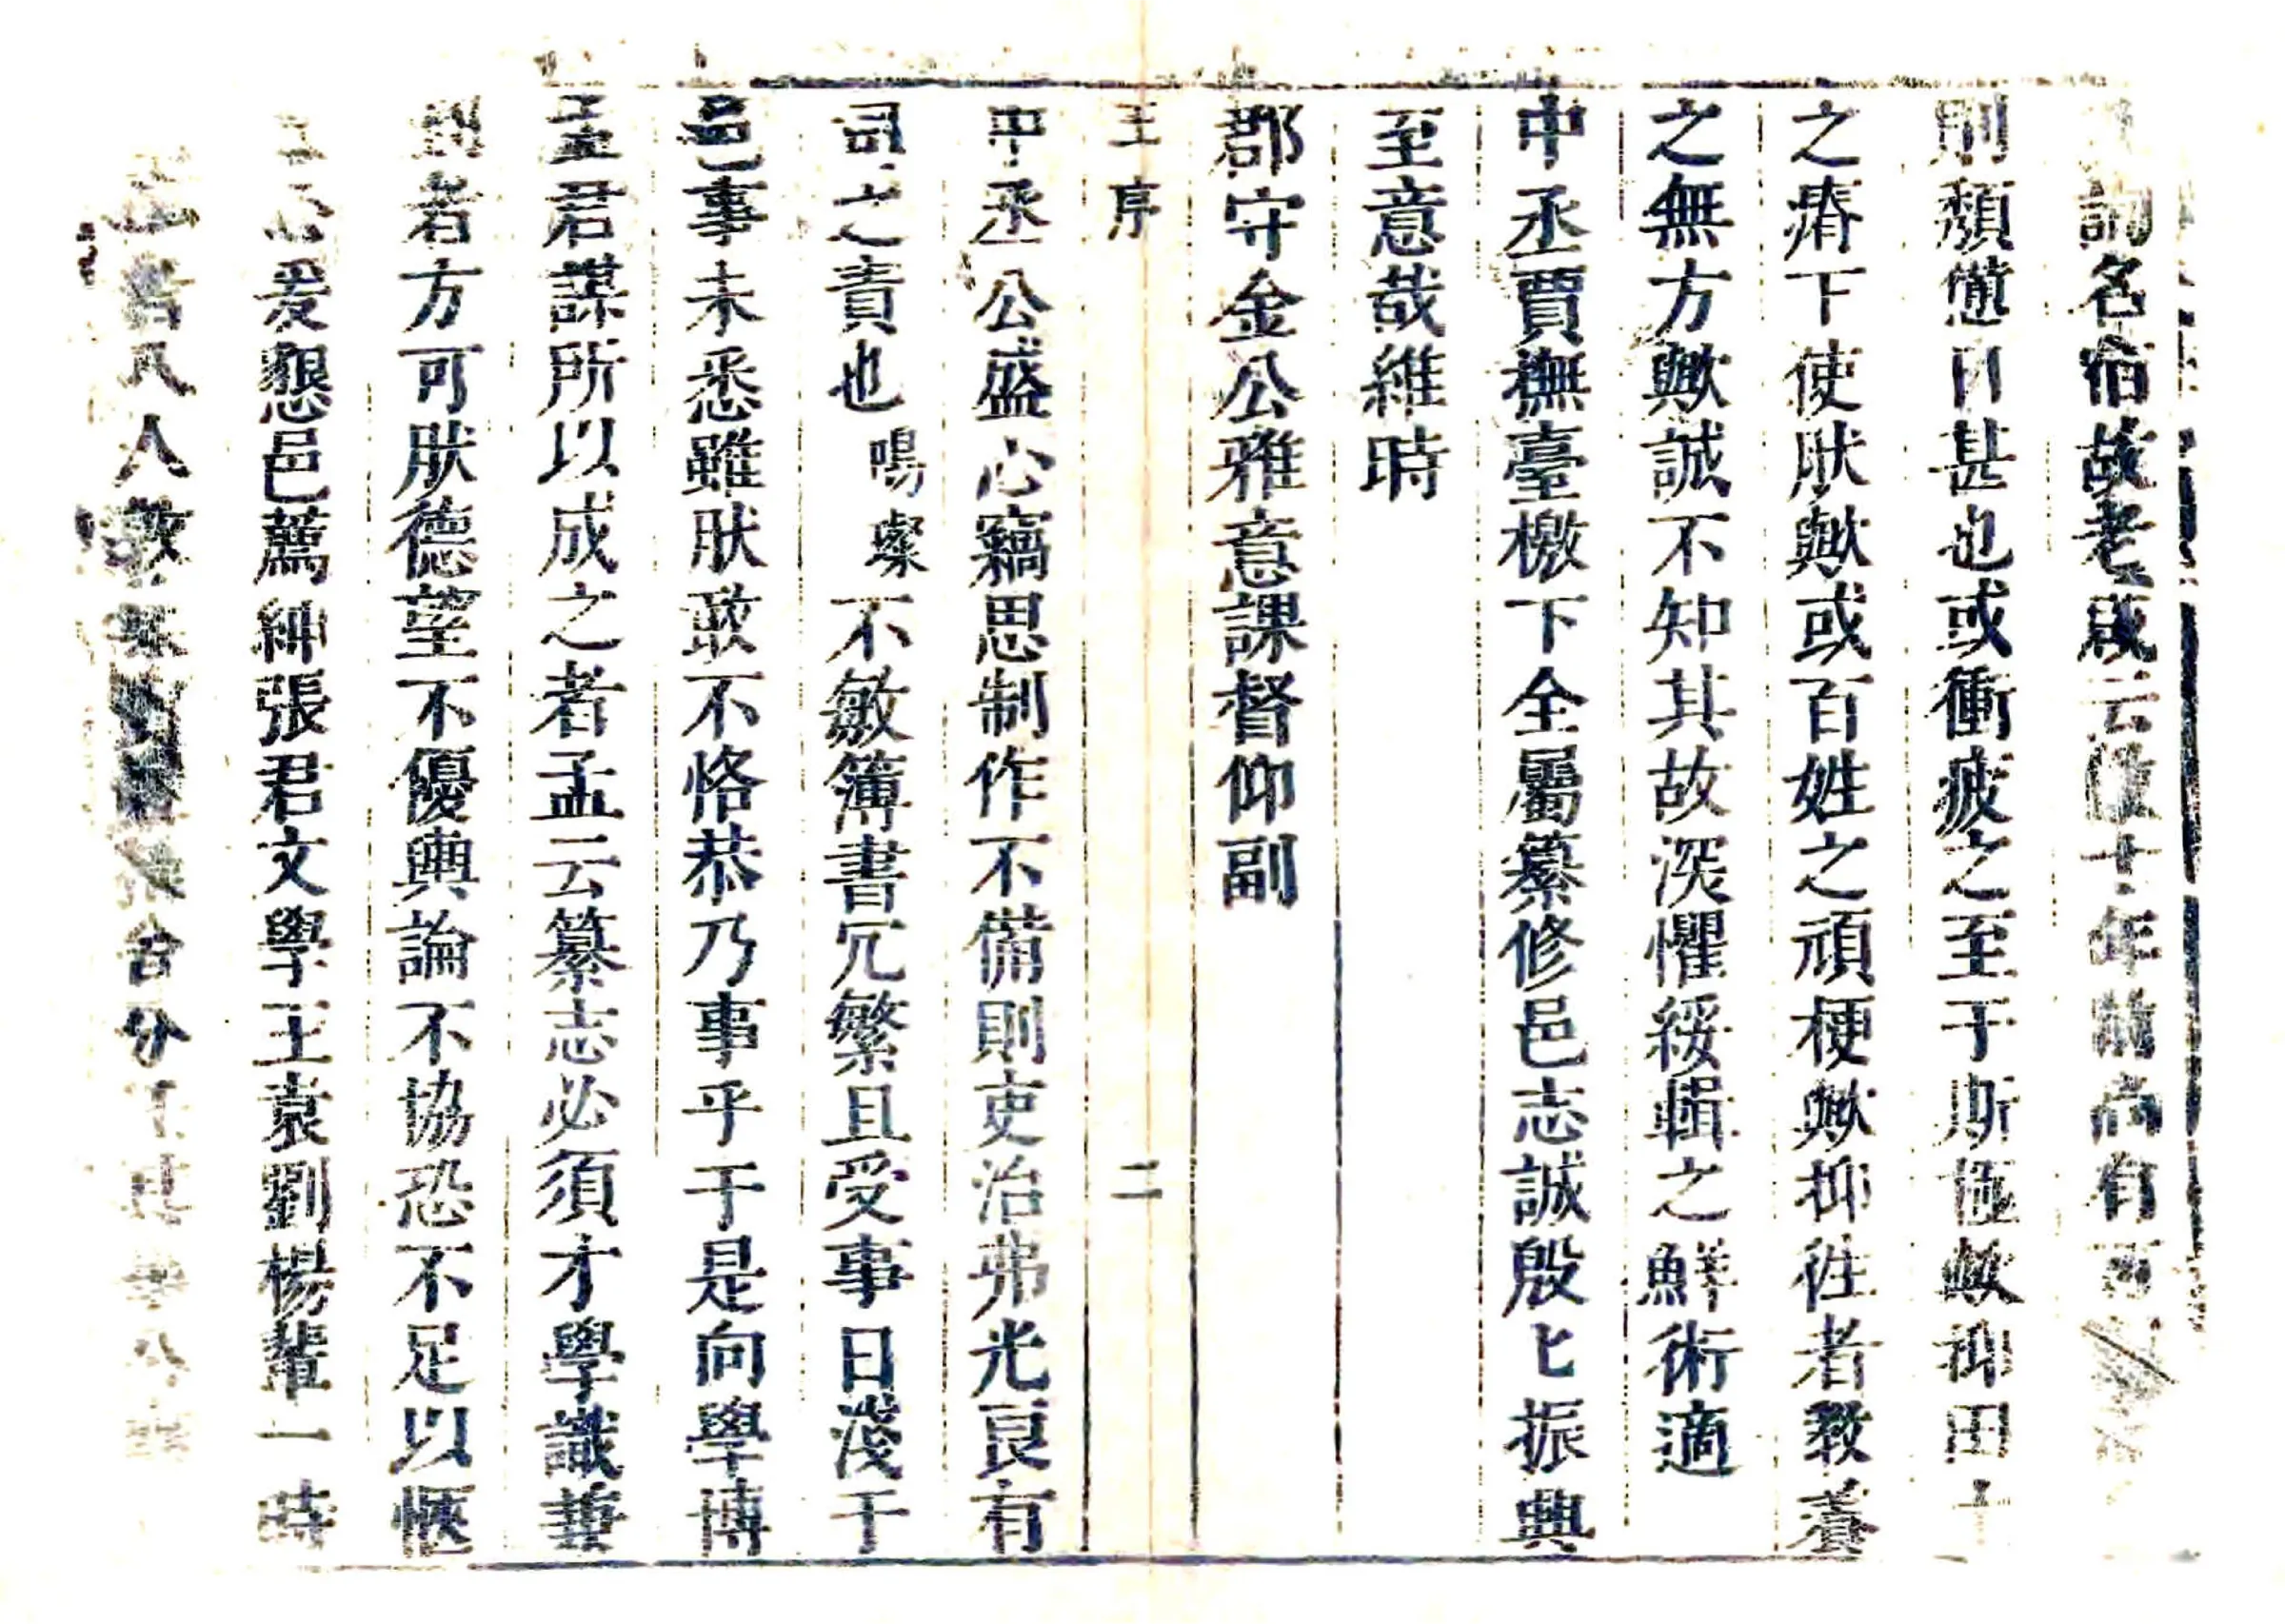 詢名宿故老咸云十年前尚有可
則頹憊日甚也或衝疲之至于斯極歟抑田土
之瘠下使肰歟或百姓之頑梗歟抑徃者教養
之無方歟誠不知其故深懼綏輯之鮮術適
中丞賈撫臺檄下全屬纂修邑志誠殷匕振典
至意哉維時
郡守金公雅意課督仰副
王序 二
中丞公盛心竊思制作不備則吏治弗光良有
司之責也鳴璨不敏簿書冗繁且受事日淺于
邑事未悉雖肰敢不恪恭乃事乎于是向學博
孟君謀所以成之者孟云纂志必須才學識兼
到者方可肰德望不優輿論不協恐不足以愜
人心爰懇邑薦紳張君文學王袁劉楊輩一時
八人敦 分